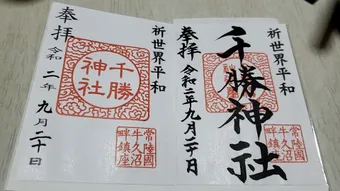 奉拝
令和二年九月二十日
千勝神社
祈世界平和
常陸國
牛久沼
畔鎮座
祈世界平和
千勝神社
奉拝
令和二年九月二十日
常陸國
牛久沼
畔鎮座